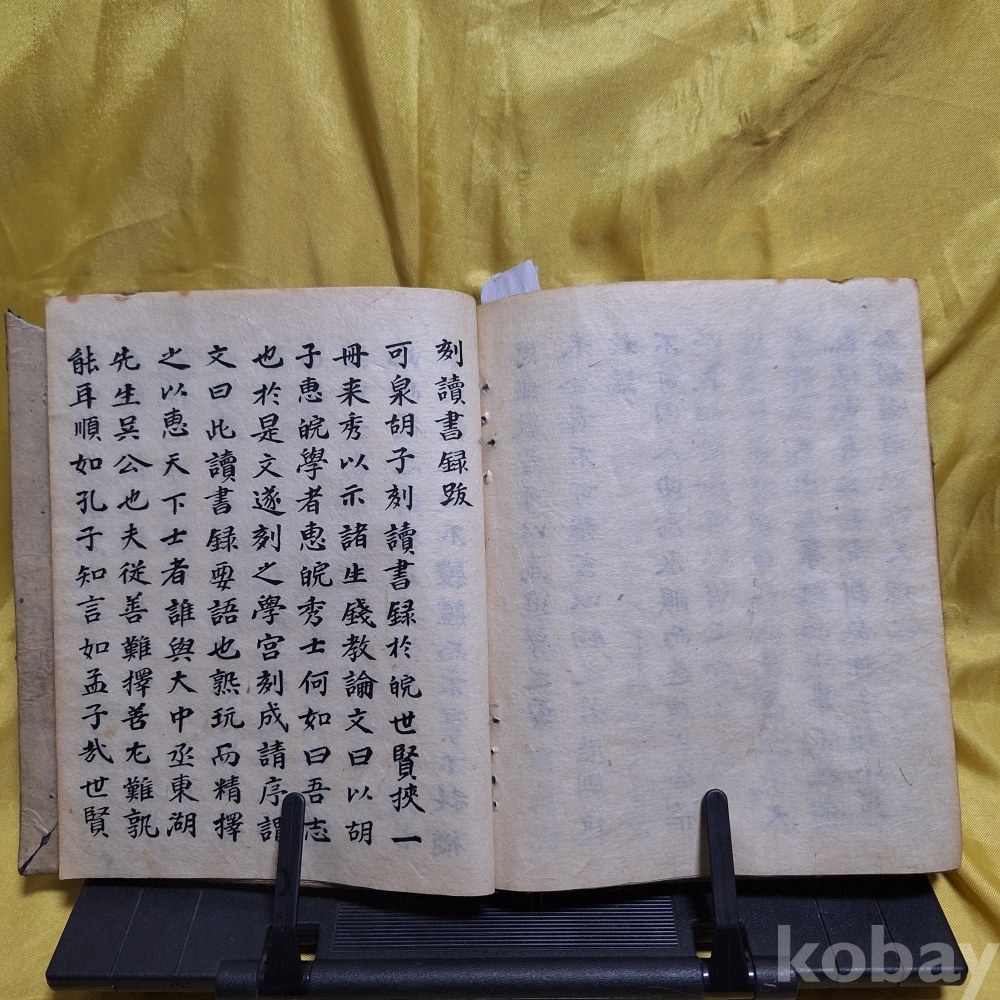 刻讀書録跋
可泉胡子刻讀書録於皖世賢挾一
冊来秀以示諸生錢教論文曰以胡
子惠皖學者惠皖秀士何如曰吾志
也於是文遂刻之學宫刻成請序謂
文曰此讀書録要語也熟玩而精擇
之以惠天下士者誰與大中丞東湖
先生吴公也夫従善難擇善尤難孰
能耳順如孔子知言如孟子哉世賢
kobay